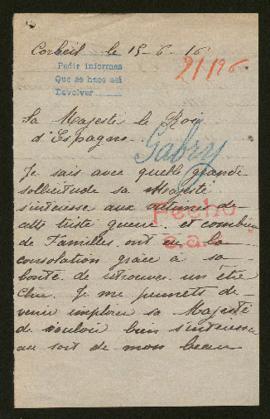 Corbeil le 15-6-16
21/126
Pedir informes
Que se hace así
Devolver
Sa Majesté le Roi
d'Espagne
Gabry
Je sais avec quelle grande
sollicitude sa Majesté
s'interesse aux victimes de
cette triste guerre et combien
Hecho
de Familles ont eu la
consolation grâce à sa
bonté de retrouver un être
Cher. Je me permets de
venir implorer sa Majesté
de vouloir bien s'interesser
au sort de mon beau